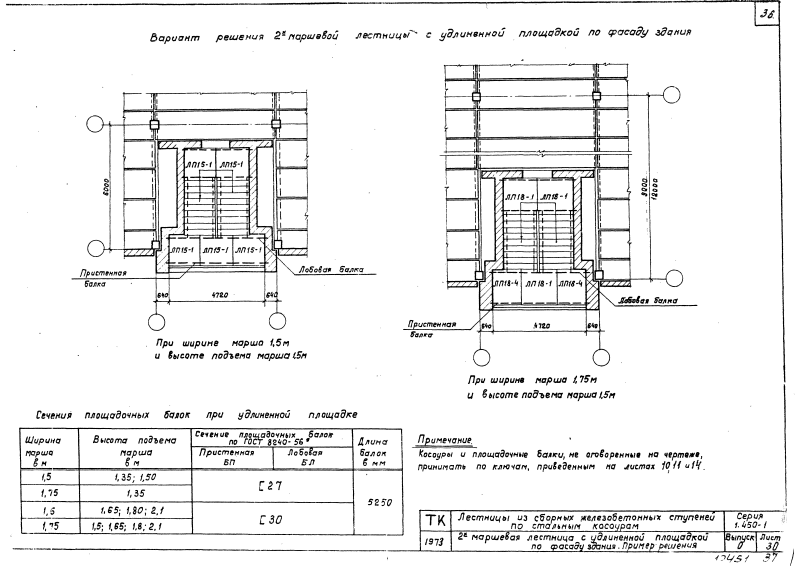 36
Вариант решения 2х маршевой лестницы с удлиненной площадкой по фасаду здания
ЛП15-1 ЛП15-1
6000
ЛП15-1 ЛП15-1 ЛП15-1
Пристенная балка
Лобовая балка
640 4720 640
При ширине марша 1,5м
и высоте подъема марша 1,5м
ЛП18-1 ЛП18-1
9000
12000
ЛП18-4 ЛП18-1 ЛП18-4
Пристенная балка
Лобовая балка
640 4720 640
При ширине марша 1,75м
и высоте подъема марша 1,5м
Сечения площадочных балок при удлиненной площадке
Ширина марша в м
Высота подъема марша в м
Сечение площадочных балок по ГОСТ 8240-56*
Пристенная БП
Лобовая БЛ
Длина балок в мм
1,5 1,35; 1,50
[ 27
1,75 1,35
5250
1,5 1,65; 1,80; 2,1
[ 30
1,75 1,5; 1,65; 1,8; 2,1
Примечание.
Косоуры и площадочные балки, не оговоренные на чертеже,
принимать по ключам, приведенным на листах 10,11 и 14.
ТК
Лестницы из сборных железобетонных ступеней
по стальным косоурам
Серия
1.450-1
1973
2х маршевая лестница с удлиненной площадкой
по фасаду здания. Пример решения
Выпуск
0
Лист
30
37